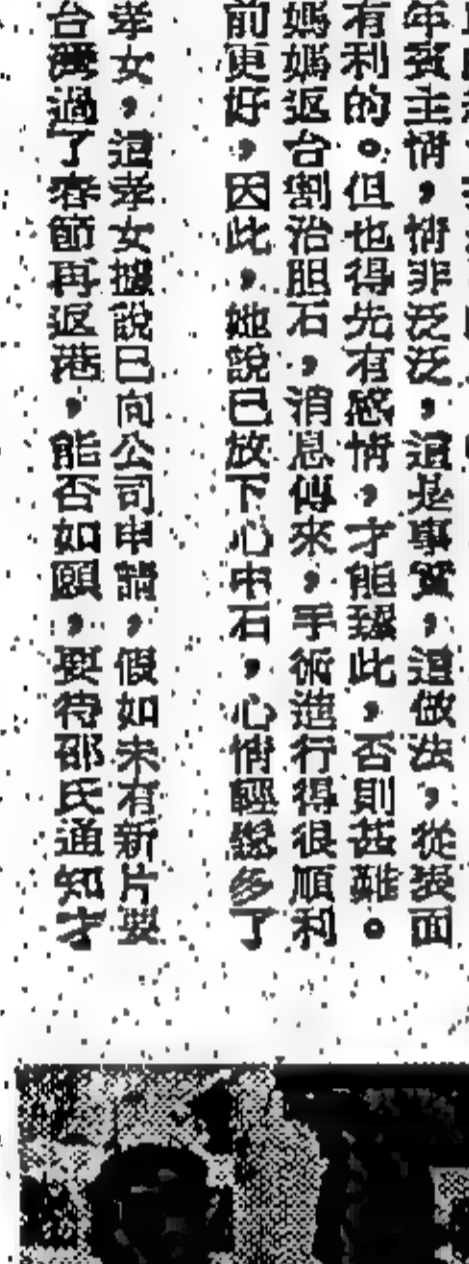 年賓主情，情非泛泛，這是事實，這做法，從表面
有利的。但也得先有感情，才能致此，否則甚難。
媽媽返台割治胆石，消息傳來，手術進行得很順利
前更好，因此，她說已放下心中石，心情輕鬆多了
孝女，這孝女據說已向公司申請，假如未有新片要
台灣過了春節再返港，能否如願，要待邵氏通知才